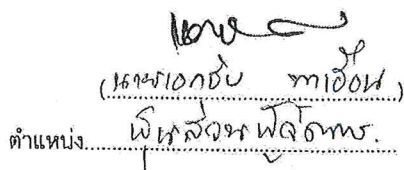 (นายเอกชัย ทาเอื้อน)
ตำแหน่ง หุ้นส่วนผู้จัดการ.